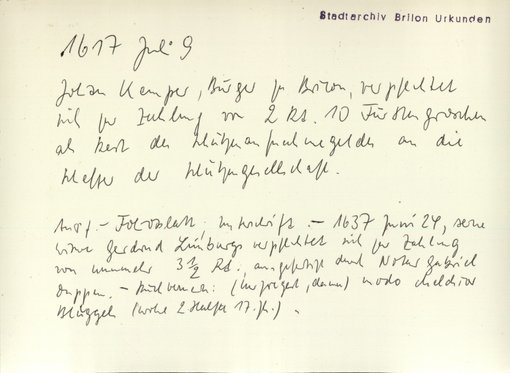 Stadtarchiv Brilon Urkunden
1617 Juli 9
Johan Kemper, Bürger zu Brilon, verpflichtet
sich zur Zahlung von 2 Rt. 10 Fürstengroschen
als Rest des Schützenaufnahmegeldes an die
Scheffer der Schützengesellschaft.
Ausf. - Folioblatt, Unterschrift. - 1637 Juni 24, seine
Witwe Gerdrud verpflichtet sich zur Zahlung
von nunmehr 3 1/2 Rt., ausgefertigt durch Notar Gabriel
- Rückvermerk: modo
(wohl 2. Hälfte 17. Jh.).